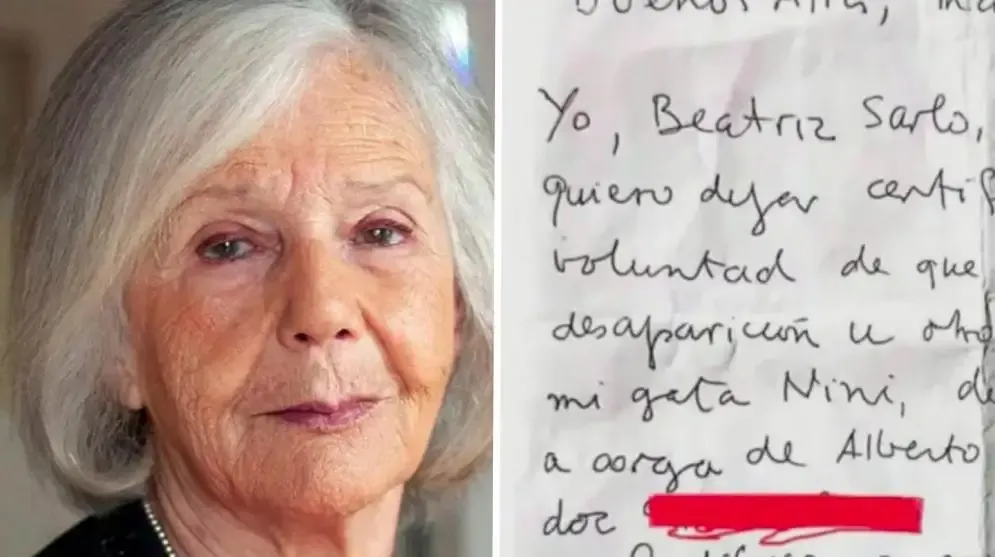 Buenos Aires, ma
Yo, Beatriz Sarlo,
quiero dejar certif
voluntad de que
desaparición u otro
mi gata Nini, de
a carga de Alberto
doc